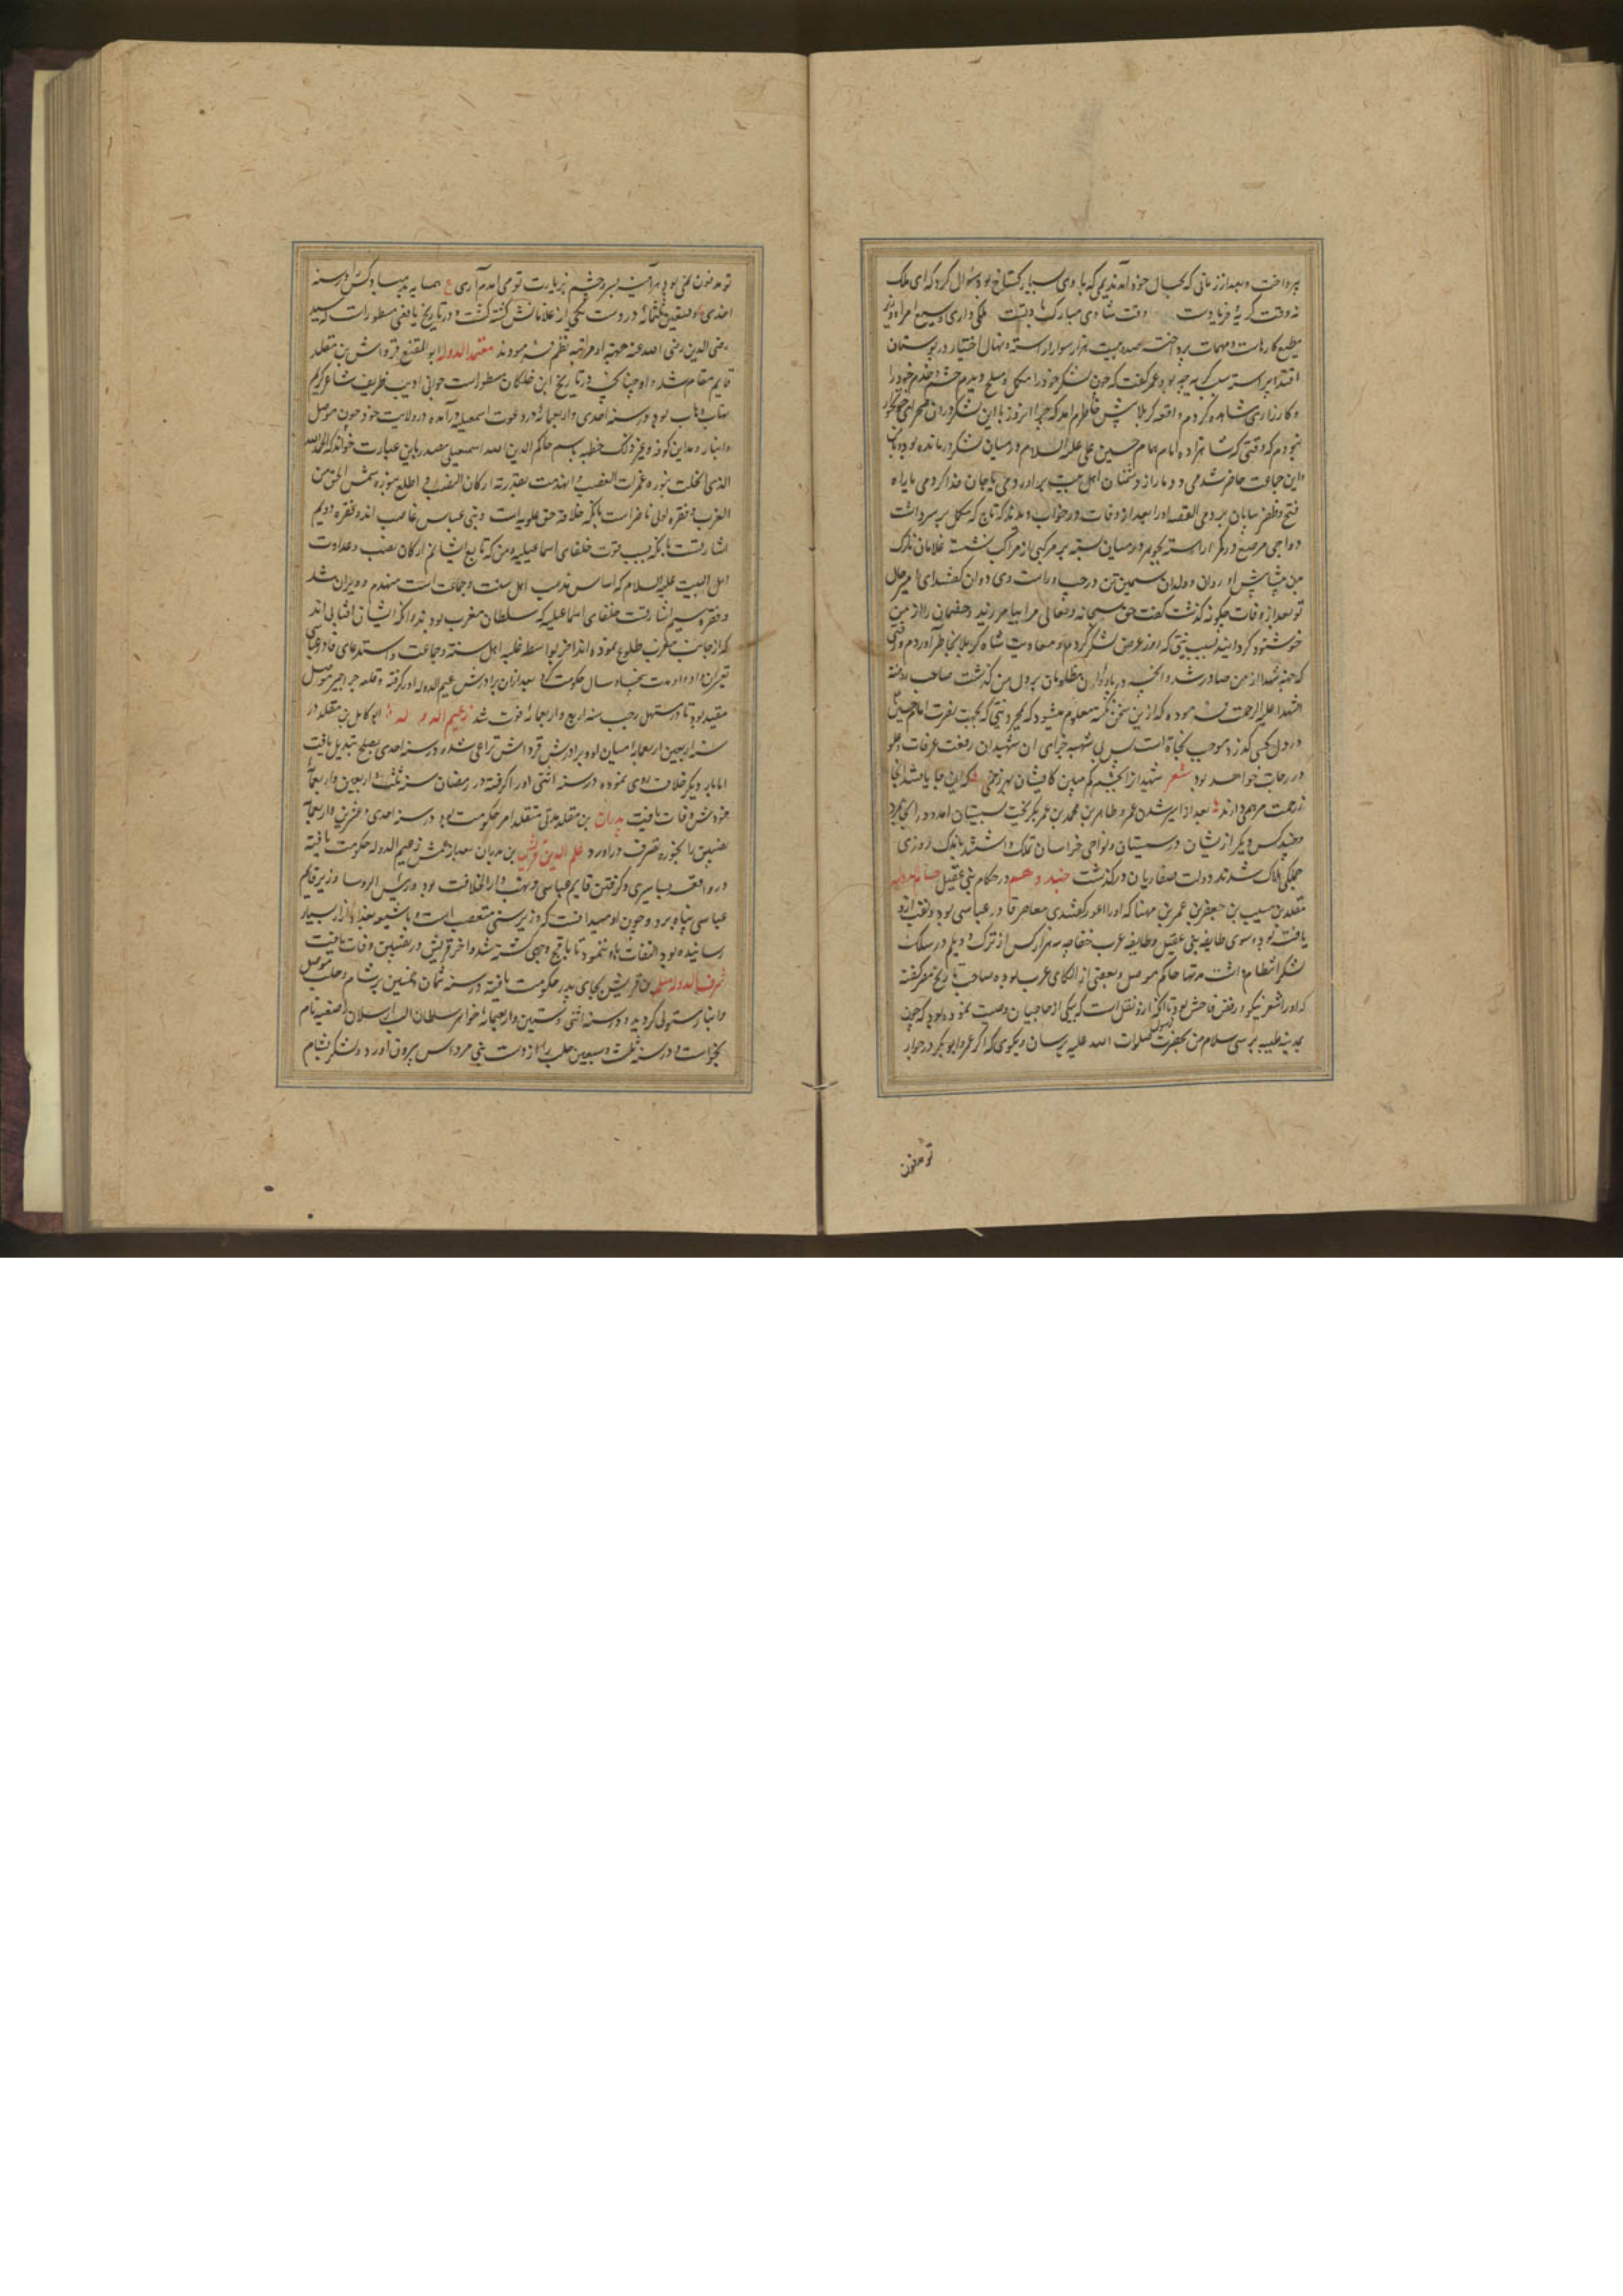 پرداخت و بعد از زمانی که بحال خود آمد ندیمی که با وی بسیار گستاخ بود سؤال کرد که ای ملک
نه وقت گریهٔ فریادست وقت شادی مبارک بادست ملکی داری وسیع امرا و وزیر
مطیع کارهات و مهمات پرداخته صد و بیست هزار سوار آراسته و نهال اختیار در بوستان
اقتدار پیراسته سبب گریه چه بود عمرو گفت که چون لشکر خود را مکمل و مسلح دیدم حشم و خدم خود را
و کارزاری مشاهده کردم واقعه کربلا پیش خاطرم آمد که چرا امروز با این لشکر در آن صحرای خونخوار
نبودم که وقتی که شاهزاده امام همام حسین علی علیه السلام در میان لشکر درمانده بود و من با
این جماعت حاضر شدمی و دمار از دشمنان اهل بیت برآوردمی یا جان فدا کردمی یا راه
فتح و ظفر بپایان بردمی القصه او را بعد از وفات در خواب دیدند که تاج مکلل بر سر داشت
دواجی مرصع در بر کمر آراسته بجوهر در میان بسته بر مرکبی از مراکب بهشت نشسته غلامان ترک
من پیشاپیش او روان و ولدان سیمین تن در چپ و راست وی دوان گفتند ای امیر حال
تو بعد از وفات چگونه گذشت گفت حق سبحانه و تعالی مرا بیامرزید و خصمان را از من
خوشنود گردانید بسبب نیتی که روز عرض لشکر کردم و معاونت شاه کربلا بخاطر آوردم و رقتی
که جهة شهدا از من صادر شد و آنچه درباره آن مظلومان بر دل من گذشت صاحب روضة
الشهدا علیه الرحمه فرموده که ازین سخن نکته معلوم میشود که بمجرد نیتی که بجهت نصرت امام حسین
در دل کسی گذرد موجب نجاة است پس بی شبهه جزای آن شهیدان رفعت غرفات و علو
درجات خواهد بود شعر شهید از آنچشم کم مبین کایشان بهر زخمی که اینجا یافتند آنجا
ز رحمت مرهمی دارند بعد از اسیر شدن عمرو طاهر بن محمد بن عمرو بگریخت بسیستان آمد و در آنجا بمرد
و چند کس دیگر ازیشان در سیستان و نواحی خراسان تملک داشتند باندک روزی
جملگی هلاک شدند دولت صفاریان درگذشت جنید دهم در حکام بنی عقیل حسام الدوله
مقلد بن مسیب بن جعفر بن عمر بن مهنا که او را اعور گفتندی معاصر قادر عباسی بود و لقب ازو
یافت بود و سوی طایفه بنی عقیل و طایفه عرب خفاجه سه هزار کس از ترک و دیلم در سلک
لشکر انتظام داشت مدتها حاکم موصل و بعضی از الکای عرب بود و صاحب تاریخ مصر گفته
که او را شعر نیکو و رفض فاحش بود تا آنکه ازو نقل است که بیکی از حاجیان وصیت نمود بود که چون
بمدینه طیبه برسی سلام من بحضرت رسول صلوات الله علیه برسان و بگوی که اگر عمر و ابوبکر در جوار
تو مدفون
تو مدفون نمی بودند هر آینه بسر و چشم بزیارت تو می آمدم آری ع همسایه بد مبادا کس را در سنه
احدی و تسعین و ثلثمائه در دست یکی از غلامانش کشته گشت و در تاریخ یافعی مسطور است که سید
رضی الدین رضی الله عنه جهة او مراثیه نظم فرمودند معتمد الدوله ابو المقنع قرواش بن مقلد
قایم مقام شد و او چنانکه در تاریخ ابن خلکان مسطور است جوانی ادیب ظریف شاعر کریم
نهاب وهاب بود در سنه احدی و اربعمائه در دعوت اسمعیلیه درآمده در ولایت خود چون موصل
و انبار و مداین و کوفه و غیر ذلک خطبه باسم حاکم الدین الله اسمعیلی مصدر باین عبارت خواند که الحمد لله
الذی انجلت بنوره غمرات الغضب و انهدمت بقدرته ارکان النصب و اطلع بنوره شمس الحق من
الغرب و فقره اولی ناظر است بآنکه خلافة حق علویه است و بنی عباس غاصب اند و فقره دویم
اشارتست بآنکه بسبب قوت خلفای اسماعیلیه و من که تابع ایشانم ارکان نصب و عداوت
اهل البیت علیه السلام که اساس مذهب اهل سنت و جماعت است منهدم و ویران شد
و فقره سیم اشارتست بخلفای اسماعیلیه که سلطان مغرب بودند و آنکه ایشان آفتابی اند
که از جانب مغرب طلوع نموده اند آخر بواسطه غلبه اهل سنة و جماعت و استدعای قادر عباسی
تغییر آن داد و او مدت پنجاه سال حکومت کرد بعد از آن برادرش زعیم الدوله او را گرفته و قلعه جراحیه موصل
مقید بود تا در مستهل رجب سنه اربع و اربعمائه فوت شد زعیم الدوله ابو کامل بن مقلد در
سنه اربعین و اربعمایه میان او و برادرش قرواش نزاعی شده در سنه احدی بصلح تبدیل یافت
اما بار دیگر خلاف وی نموده در سنه اثنی او را گرفته در رمضان سنه ثلث و اربعین و اربعمائه
خودش وفات یافت بدران بن مقلد مدتی متقلد امر حکومت بود در سنه احدی و عشرین و اربعمائه
نصیبین را بحوزه تصرف درآورد علم الدین قریش بن بدران بعد از عمش زعیم الدوله حکومت یافته
در واقعه بساسیری و گرفتن قایم عباسی و نهب دار الخلافت بود و رئیس الروسا وزیر قایم
عباسی پناه برد و چون او میدانست که وزیر سنی متعصب است و با شیعه بغداد آزار بسیار
رسانیده بود التفات باو ننمود تا باقبح وجهی کشته شد و آخر قریش در نصیبین وفات یافت
شرف الدوله مسلم بن قریش بجای پدر حکومت یافته در سنه ثمان و خمسین بر شام و حلب و موصل
و انبار مستولی گردید و در سنه اثنی و ستین و اربعمائه خواهر سلطان الب ارسلان صفیه نام
بخواست و در سنه ثلث و سبعین حلب را از دست بنی مرداس بیرون آورد و لشکر بشام